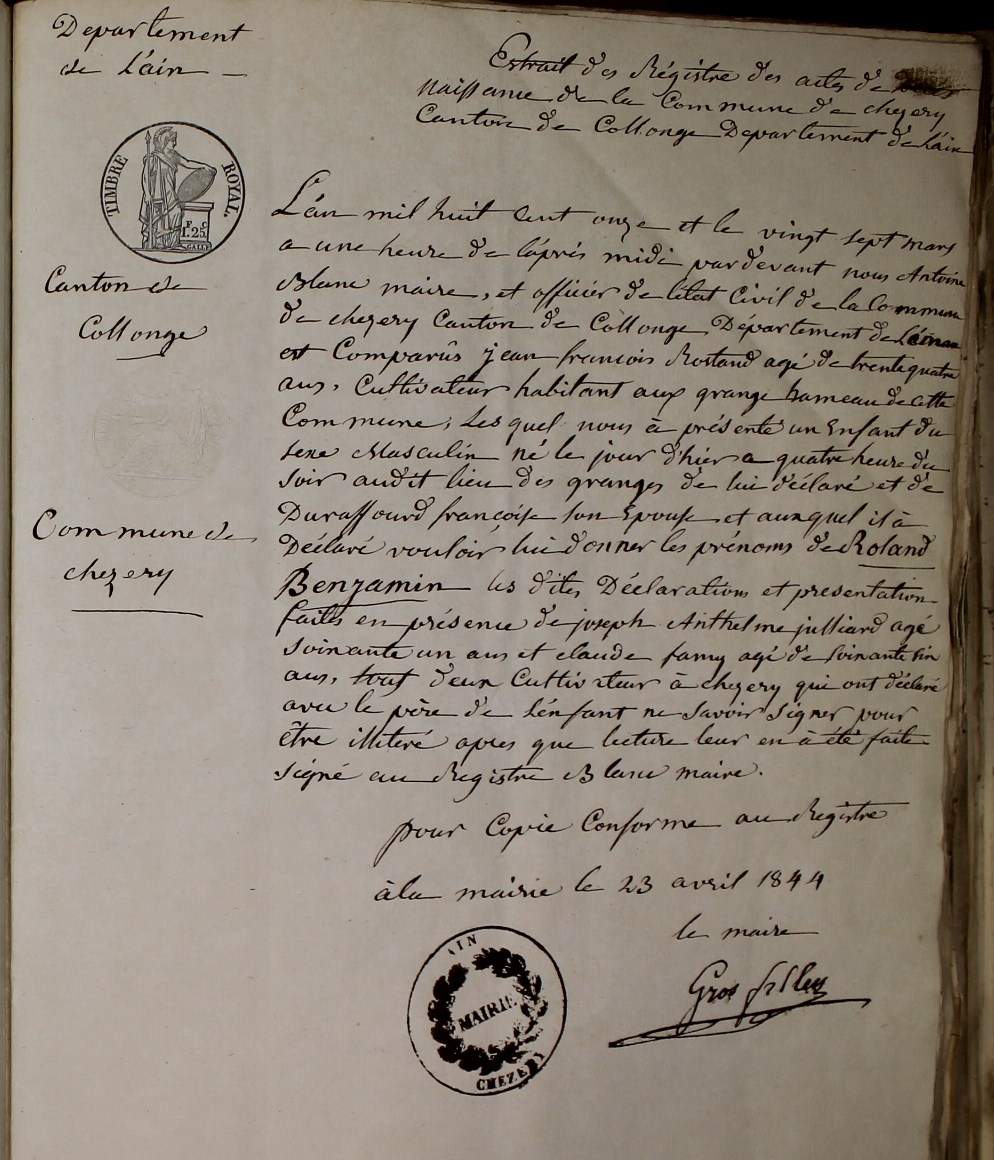 Departement
de L'ain
Extrait des Régistre des actes de
naissance de la Commune de chezery
Canton de Collonge Departement de L'ain
TIMBRE ROYAL.
F. C
1.25
L'an mil huit Cent onze et le vingt sept mars
a une heure de l'après midi pardevant nous Antoine
Blanc maire, et officier de l'état Civil de la Commune
de chezery Canton de Collonge Département de
est Comparûs jean francois Rostand agé de trente quatre
ans, Cultivateur habitant aux grange hameau de cette
Commune, Lesquel nous à présenté un Enfant du
sexe Masculin né le jour d'hier a quatre heure du
soir audit lieu des granges de lui déclaré et de
Duraffourd françoise son Epouse et auxquel il à
Déclaré vouloir lui donner les prénoms de Roland
Benjamin les dites Déclarations et presentation
faites en présence de joseph Anthelme julliard agé
soixante un ans et claude famy agé de soixante six
ans, tout deux Cultivateur à chezery qui ont déclaré
avec le père de L'énfant ne savoir signer pour
être illiteré apres que lecture leur en à été faite
signé au Registre Blanc maire.
Canton de
Collonge
Commune de
chezery
pour Copie Conforme au Registre
à la mairie le 23 avril 1844
le maire
AIN
MAIRIE
CHEZERY